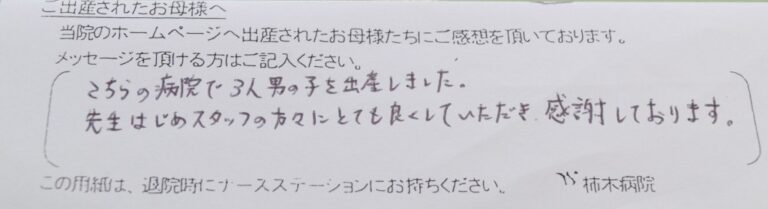 ご出産されたお母様へ
当院のホームページへ出産されたお母様たちにご感想を頂いております。
メッセージを頂ける方はご記入ください。
こちらの病院で3人男の子を出産しました。
先生はじめスタッフの方々にとても良くしていただき、感謝しております。
この用紙は、退院時にナースステーションにお持ちください。 柿木病院